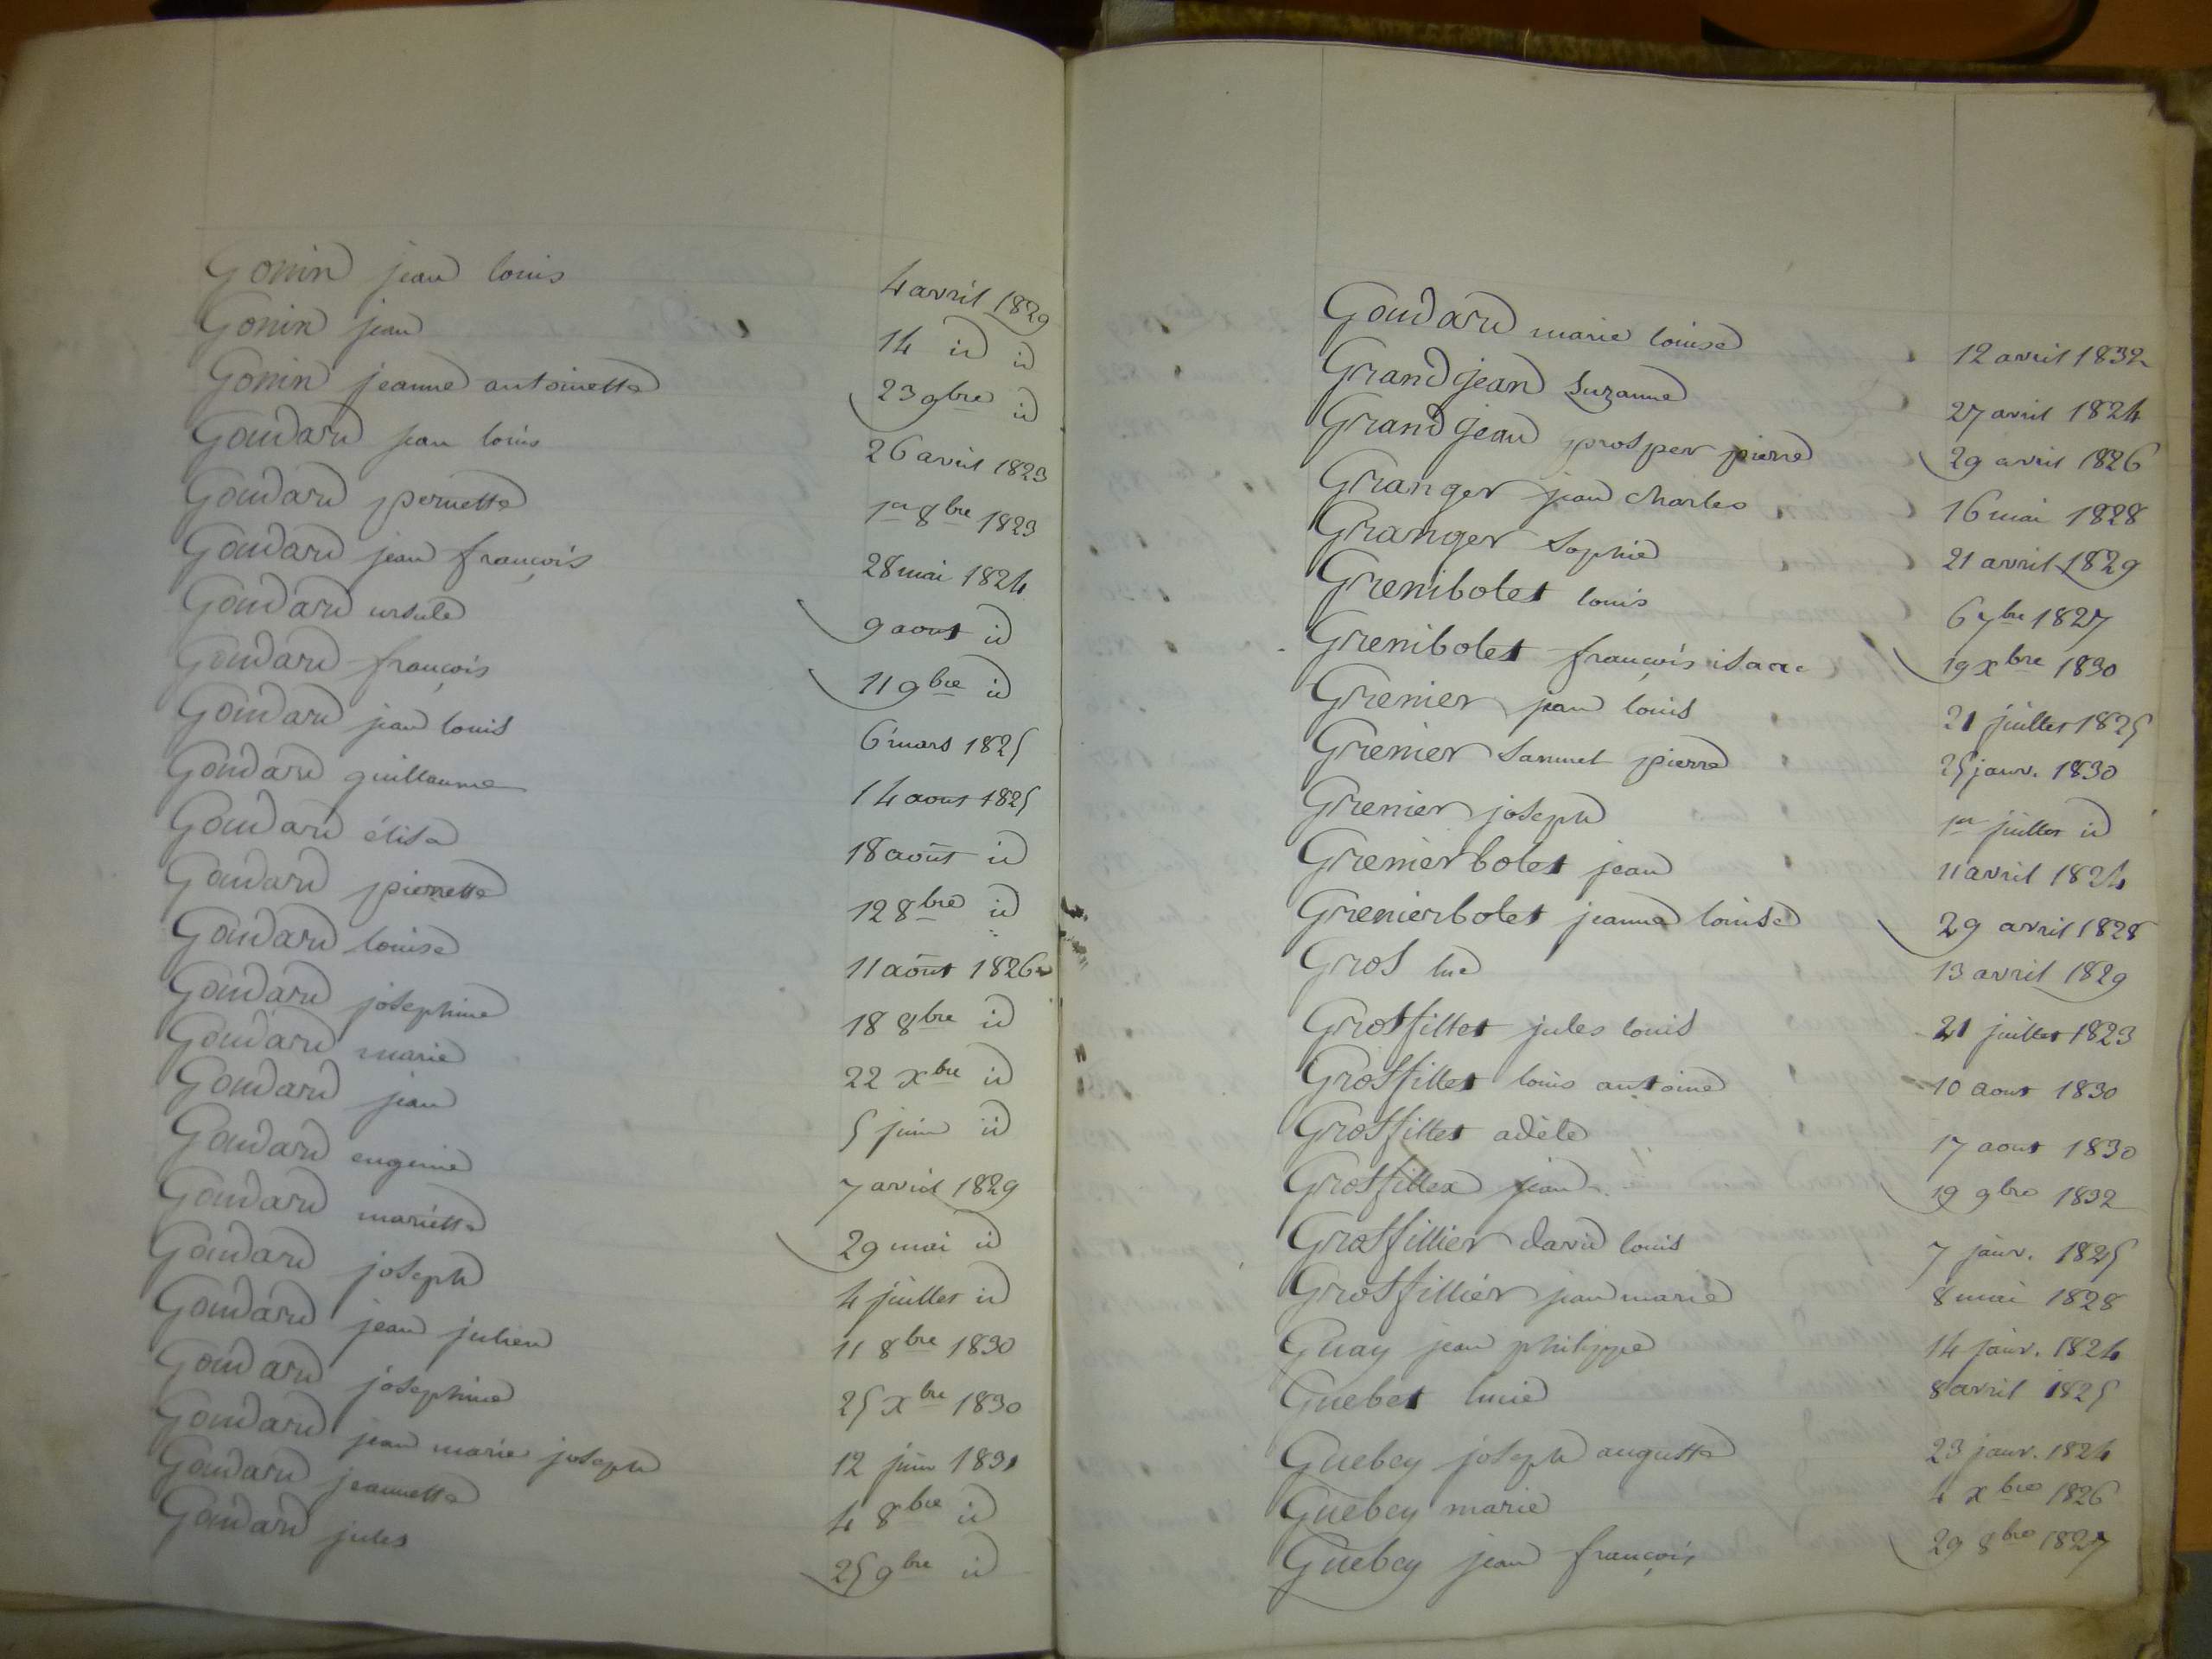 Gonin jean louis 4 avril 1829
Gonin jean 14 id id
Gonin jeanne antoinette 23 9bre id
Goudard jean louis 26 avril 1823
Goudard pernette 1er 8bre 1823
Goudard jean françois 28 mai 1824
Goudard ursule 9 aout id
Goudard françois 11 9bre id
Goudard jean louis 6 mars 1825
Goudard guillaume 14 aout 1825
Goudard élisa 18 août id
Goudard pierrette 12 8bre id
Goudard louise 11 août 1826
Goudard josephine 18 8bre id
Goudard marie 22 xbre id
Goudard jean 5 juin id
Goudard eugenie 7 avril 1829
Goudard mariette 29 mai id
Goudard joseph 4 juillet id
Goudard jean julien 11 8bre 1830
Goudard josephine 25 xbre 1830
Goudard jean marie joseph 12 juin 1831
Goudard jeannette 4 8bre id
Goudard jules 25 9bre id
Goudard marie louise 12 avril 1832
Grandjean Suzanne 27 avril 1824
Grandjean prosper pierre 29 avril 1826
Granger jean charles 16 mai 1828
Granger Sophie 21 avril 1829
Grenibolet louis 6 7bre 1827
Grenibolet françois isaac 19 xbre 1830
Grenier jean louis 21 juillet 1825
Grenier Samuel pierre 25 janv. 1830
Grenier joseph 1er juillet id
Grenierbolet jean 11 avril 1824
Grenierbolet jeanne louise 29 avril 1828
Gros luc 13 avril 1829
Grosfillet jules louis 21 juillet 1823
Grosfillet louis antoine 10 aout 1830
Grosfillet adèle 17 aout 1830
Grosfillex jean 19 9bre 1832
Grosfillier david louis 7 janv. 1825
Grosfillier jean marie 8 mai 1828
Guay jean philippe 14 janv. 1824
Guebet lucie 8 avril 1825
Guebey joseph auguste 23 janv. 1824
Guebey marie 4 xbre 1826
Guebey jean françois 29 8bre 1827